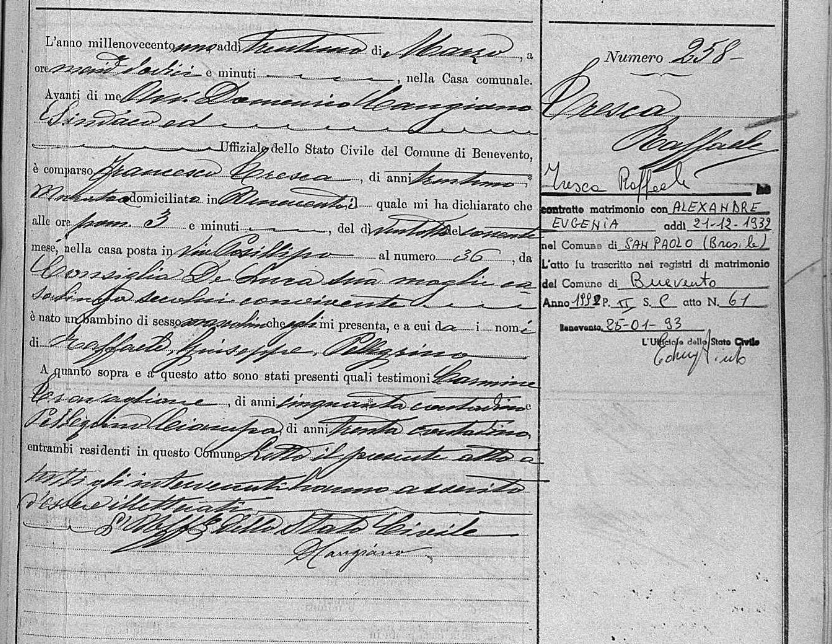 L'anno millenovecento uno addì trentuno di Marzo, a
ore e minuti , nella Casa comunale.
Avanti di me Domenico Mangiano
Sindaco ed
Uffiziale dello Stato Civile del Comune di Benevento,
è comparso Francesco Tresca, di anni trentuno
domiciliato in Benevento il quale mi ha dichiarato che
alle ore pom. 3 e minuti , del dì ventotto del corrente
mese, nella casa posta in via Posillipo al numero 36, da
Consiglia De Luca sua moglie ca
salinga seco lui convivente
è nato un bambino di sesso mascolino che egli mi presenta, e a cui da i nomi
di Raffaele, Giuseppe, Pellegrino
A quanto sopra e a questo atto sono stati presenti quali testimoni Carmine
, di anni cinquanta contadino e
Pellegrino Ciampa, di anni trenta contadino
entrambi residenti in questo Comune. Letto il presente atto a
tutti gli intervenuti hanno asserito
d'essere illetterati
L'Uff.le dello Stato Civile
DMangiano
Numero 258
Tresca
Raffaele
Tresca Raffaele
contratto matrimonio con ALEXANDRE
EUGENIA addì 21-12-1932
nel Comune di SAN PAOLO (Brasile)
L'atto fu trascritto nei registri di matrimonio
del Comune di Benevento
Anno 1992 P. II S. C atto N. 61
Benevento, 25-01-93
L'Ufficiale dello Stato Civile